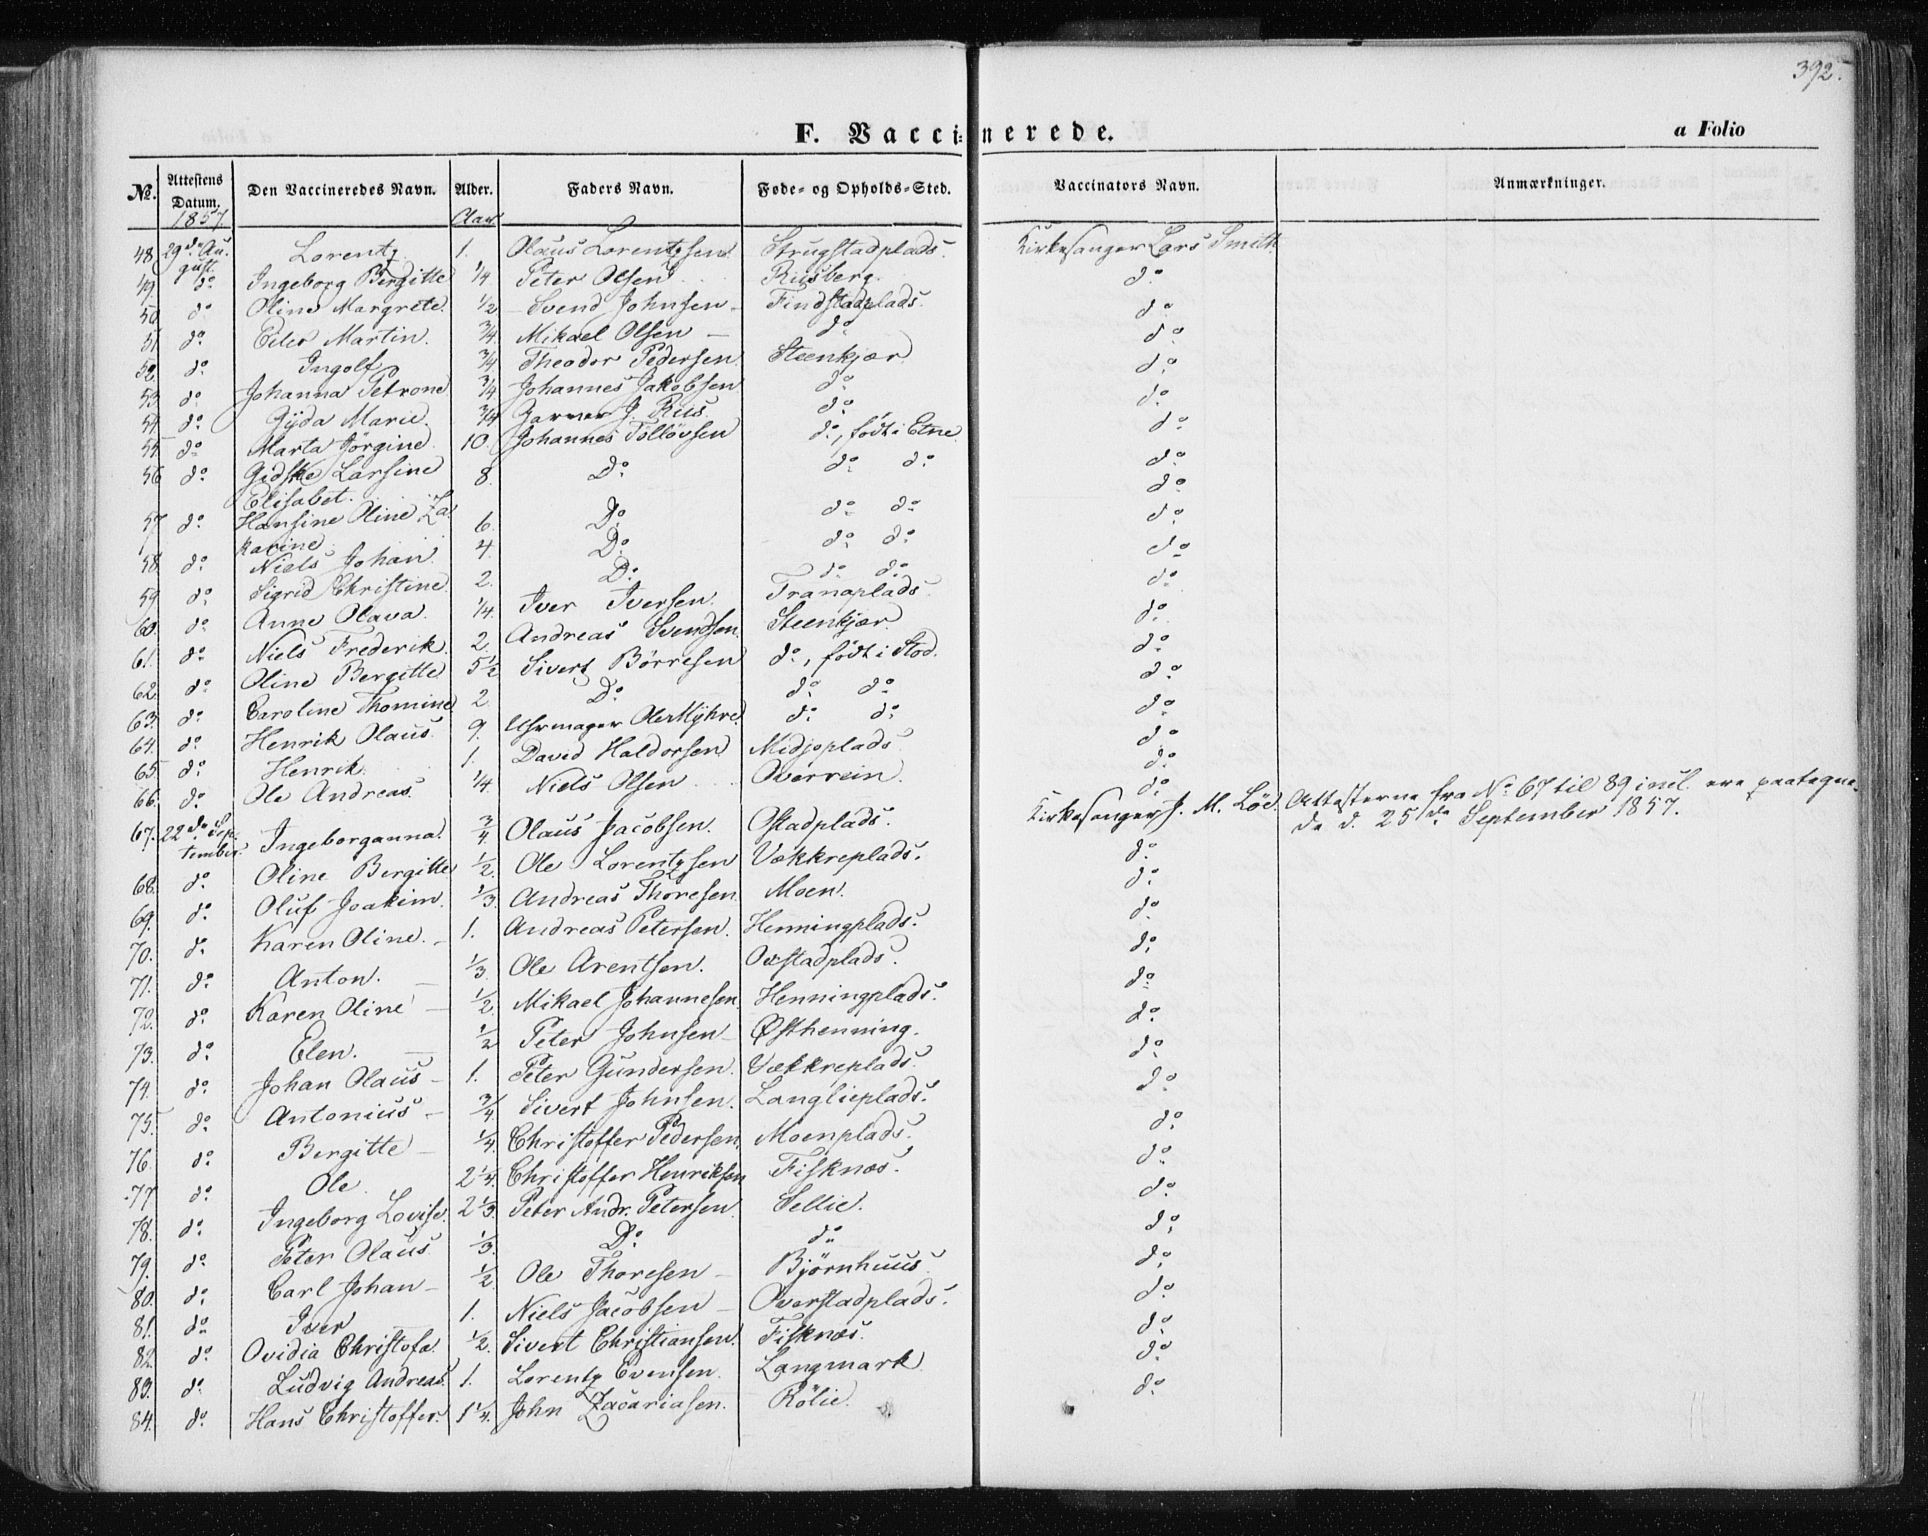 392.
F. Vaccinerede.
a Folio
No. Attestens Datum. Den Vaccineredes Navn. Alder. Faders Navn. Føde- og Opholds-Sted. Vaccinators Navn. Anmærkninger.
1857 Aar
48. 29de August. Lorentz 1. Olaus Lorentzsen. Strugstadplads. Kirkesanger Lars Smith
49. do Ingeborg Bergitte 1/4 Peter Olsen Riisberg. do
50 do Oline Margrete. 1/2 Svend Johnsen Findstadplads. do
51 do Eiler Martin. 3/4 Mikael Olsen do do
52. do Ingolf 3/4 Theodor Pedersen Steenkjær do
53 do Johanna Petrone 3/4 Johannes Jakobsen do do
54 do Gÿda Marie. 3/4 Garver J. Riis. do do
55 do Marta Jörgine 10. Johannes Tollövsen do, födt i Etne. do
56 do Gidske Larsine Elisabet. 8. Do do do do
57 do Hansine Oline Zakarine 6. Do do do do
58 do Niels Johan 4. Do do do do
59 do Sigrid Christine 2. Do do do do
60. do Anne Olava. 1/4. Iver Iversen. Tranaplads. do
61. do Niels Frederik. 2. Andreas Svendsen. Steenkjær. do
62. do Oline Bergitte 5 1/2 Sivert Börresen do, födt i Stod. do
63. do Caroline Thomine 2. Do do do do
64. do Henrik Olaus. 9. Uhrmager Ole Myhre. do do do
65. do Henrik. 1. David Haldorsen Midjoplads. do
66. do Ole Andreas. 1/4 Niels Olsen Overrein. do
67. 22de September. Ingeborganna. 3/4 Olaus Jacobsen. Ostadplads. Kirkesanger J. M. Löe. Attesterne fra No 67 til 89 incl. ere paategne-
de d. 25de September 1857.
68. do Oline Bergitte 1/2. Ole Lorentzsen Vekkreplads. do
69. do Oluf Joakim. 1/3. Andreas Thoresen Moen. do
70. do Karen Oline. 1. Andreas Petersen. Henningplads. do
71. do Anton. 1/3. Ole Arentsen. Oxstadplads. do
72. do Karen Oline 1/2 Mikael Johannesen Henningplads. do
73. do Elen. 1/2 Peter Johnsen Østhenning. do
74. do Johan Olaus 1. Peter Gundersen. Vekkreplads. do
75. do Antonius 3/4 Sivert Johnsen. Langlieplads. do
76. do Bergitte 1/4. Christoffer Pedersen. Moenplads. do
77 do Ole. 2 1/4. Christoffer Henriksen Fisknæs. do
78. do Ingeborg Lovise. 2 1/3. Peter Andr. Petersen. Sellie. do
79. do Peter Olaus 1/3. Do do do
80. do Carl Johan 1/2 Ole Thoresen Bjørnhuus. do
81. do Iver 1. Niels Jacobsen Overstadplads. do
82. do Ovidia Christofa. 1/2. Sivert Christiansen. Fisknæs. do
83. do Ludvig Andreas. 1. Lorentz Evensen. Langmark do
84. do Hans Christoffer. 1 1/4. John Zacariasen. Rölie. do